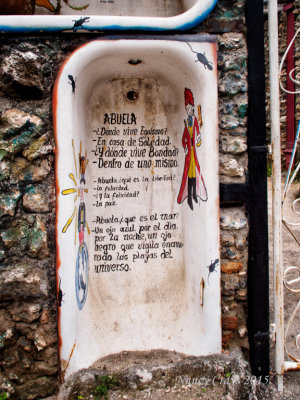 ABUELA
-¿Dónde vive Egoismo?
- En casa de Soledad.
-¿Y dónde vive Bondad?
- Dentro de uno mismo.
- Abuela, ¿qué es la libertad?
- La felicidad.
- ¿Y la felicidad?
- La paz.
- Abuela, ¿qué es el mar?
Un ojo azul por el día,
por la noche, un ojo
negro que vigila enamo
rado las playas del
universo.